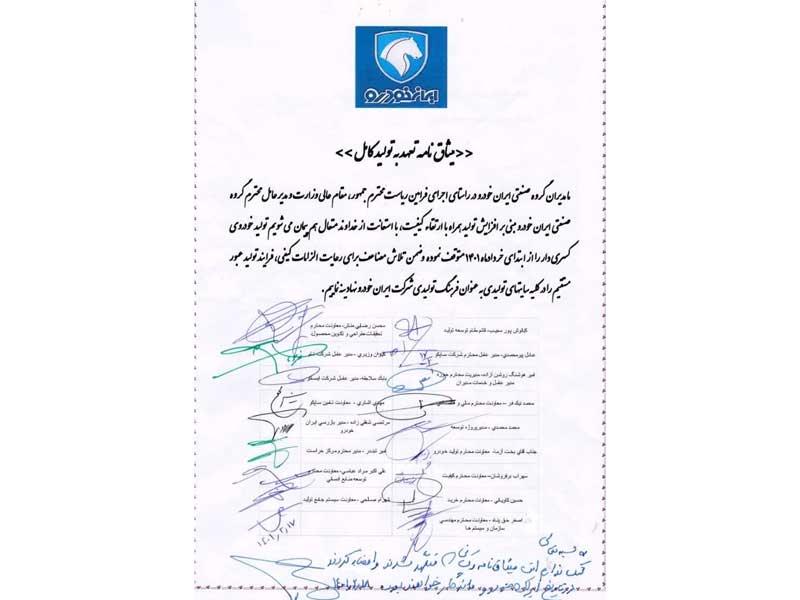 ایران خودرو
<<میثاق نامه تعهد به تولید کامل>>
ما مدیران گروه صنعتی ایران خودرو در راستای اجرای فرامین ریاست محترم جمهور، مقام عالی وزارت و مدیر عامل محترم گروه
صنعتی ایران خودرو مبنی بر افزایش تولید همراه با ارتقاء کیفیت، با استعانت از خداوند متعال هم پیمان می شویم تولید خودروی
کسری دار را از ابتدای خرداد ماه ۱۴۰۱ متوقف نموده و ضمن تلاش مضاعف برای رعایت الزامات کیفی، فرایند تولید عبور
مستقیم را در کلیه سایتهای تولیدی به عنوان فرهنگ تولیدی شرکت ایران خودرو نهادینه نماییم.
کیانوش پور مجیب، قائم مقام توسعه تولید
محسن رضایی منش، معاونت محترم
تحقیقات، طراحی و تکوین محصول
عادل پیرمحمدی، مدیر عامل محترم شرکت ساپکو
کیوان وزیری - مدیر عامل شرکت
امیر هوشنگ روشن آزاده، مدیریت محترم حوزه
مدیر عامل و خدمات مدیران
بابک سلاجقه، مدیر عامل شرکت ایسکو
محمد نیک فر - معاونت محترم مالی و
مهدی انصاری - معاونت تامین ساپکو
محمد محمدی - مدیر پروژه توسعه
مرتضی شفیع زاده - مدیر بازرسی ایران
خودرو
جناب آقای بخت آزما، معاونت محترم تولید خودرو
امیر تبندر - مدیر محترم مرکز حراست
سهراب برفروشان - معاونت محترم کیفیت
علی اکبر مراد عباسی - معاونت محترم
توسعه منابع انسانی
حسین کاویانی - معاونت محترم خرید
شهرام صالحی - معاونت سیستم جامع تولید
اصغر حق پناه - معاونت محترم مهندسی
سازمان و سیستم ها
۱۴۰۱/۲/۱۷